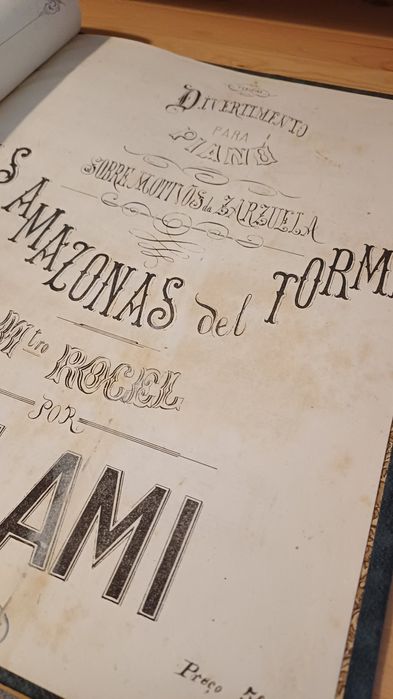 DIVERTIMENTO
PARA
PIANO
SOBRE MOTIVOS da ZARZUELA
S AMAZONAS del TORM
Mtro ROGEL
POR
AMI
Preço